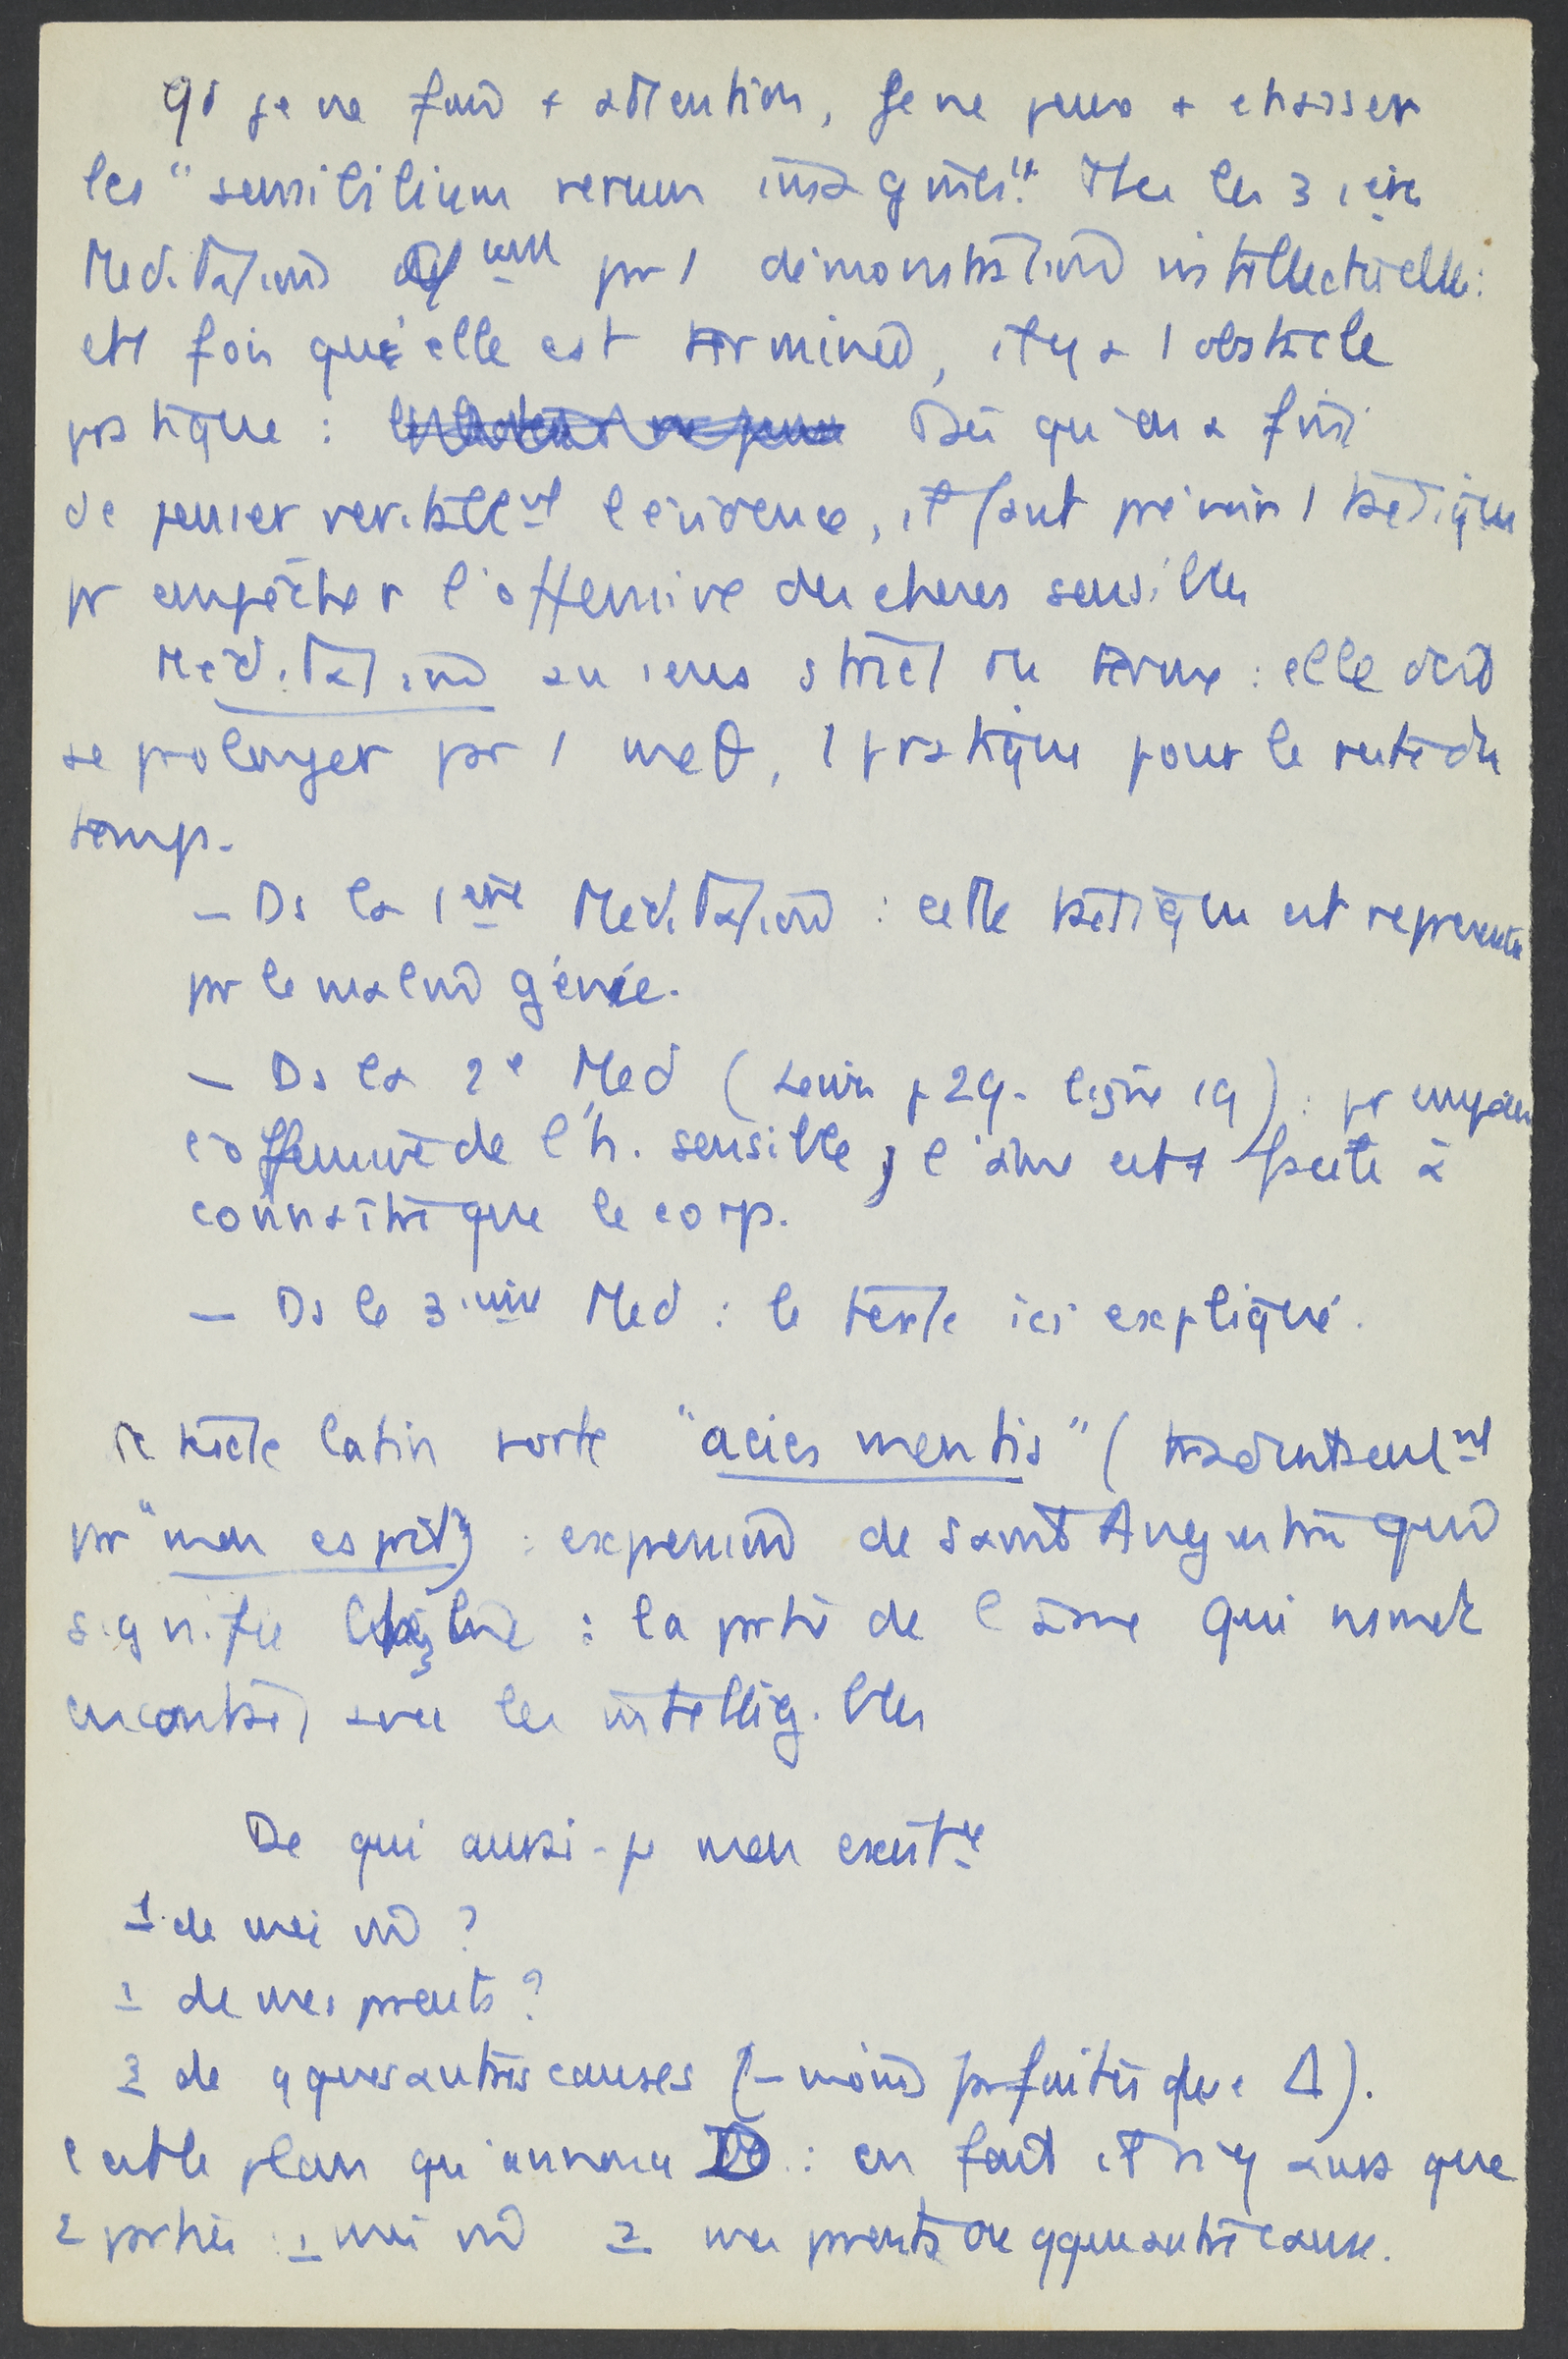 qd je ne fais + attention, je ne peux + chasser
les "sensibilium rerum imagines". Ttes les 3 1ères
Méditations pr 1 démonstration intellectuelle :
1 fois que elle est terminée, il y a 1 obstacle
pratique : Dès qu'on a fini
de penser véritablemt l'évidence, il faut prévoir 1 tactique
pr empêcher l'offensive des choses sensibles
Méditation au sens strict du terme : elle doit
se prolonger par 1 meθ, 1 pratique pour le reste du
temps.
— Ds la 1ère Méditation : cette tactique est représentée
par le malin génie.
— Ds la 2e Med ( p 29 - ligne 19) : pr
l'offensive de l'h. sensible, l'âme est + facile à
connaître que le corps.
— Ds la 3ième Med : le texte ici expliqué.
le texte latin porte "acies mentis" (
par "mon esprit") : expression de saint Augustin qui
signifie : la partie de l'âme qui ns met
en contact avec les intelligibles
De qui aurai-je mon existce
1 de moi m ?
2 de mes parents ?
3 de qques autres causes (- moins parfaites que Δ).
c'est le plan qu'annonce D : en fait il n'y aura que
2 parties : 1 moi m 2 mes parents ou qque autre cause.